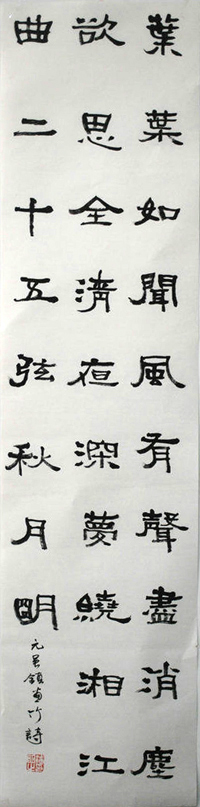 葉葉如聞風有聲盡消塵
欲思全清夜深夢繞湘江
曲二十五弦秋月明
元吳鎮畫竹詩